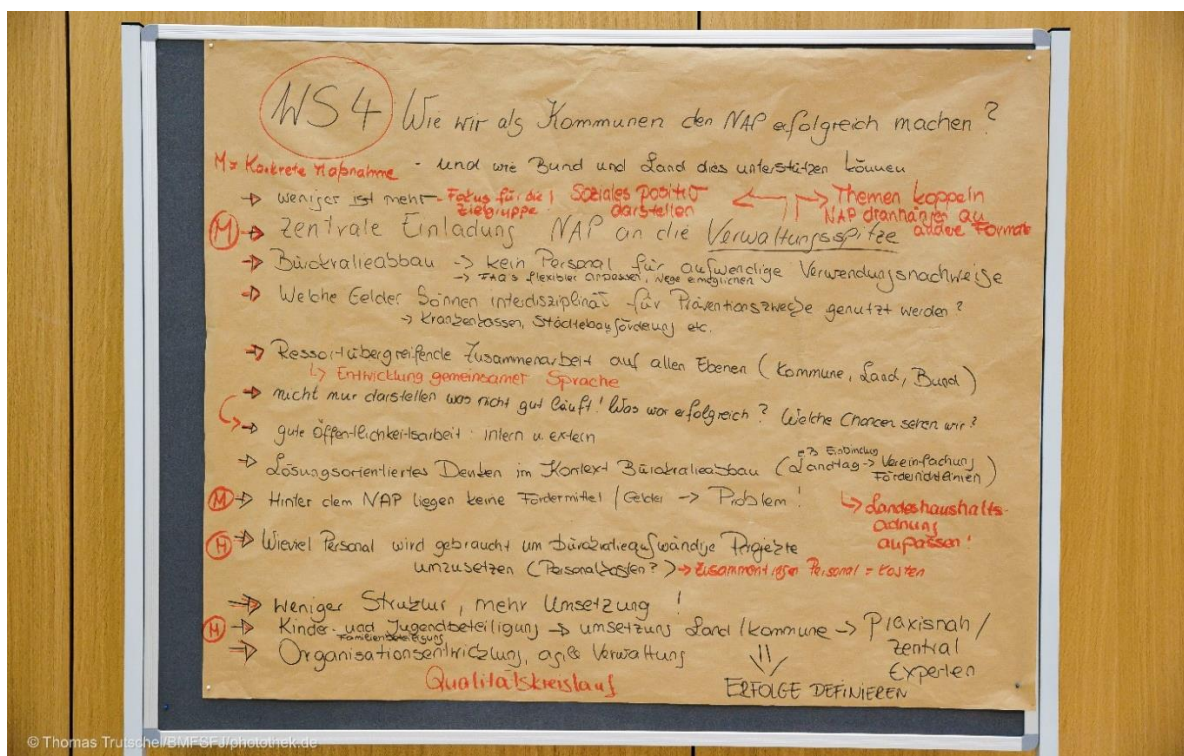 WS4 Wie wir als Kommunen den NAP erfolgreich machen?
M = Konkrete Maßnahme - und wie Bund und Land dies unterstützen können
→ weniger ist mehr - Fokus für die Zielgruppe ! Soziales positiv darstellen ← → Themen koppeln NAP dranhängen an andere Formate
M → Zentrale Einladung NAP an die Verwaltungsspitze
→ Bürokratieabbau → kein Personal für aufwendige Verwendungsnachweise
→ FAQ's flexibler anpassen, Wege ermöglichen
→ Welche Gelder können interdisziplinär für Präventionszwecke genutzt werden?
→ Krankenkassen, Städtebauförderung etc.
→ Ressortübergreifende Zusammenarbeit auf allen Ebenen (Kommune, Land, Bund)
↳ Entwicklung gemeinsamer Sprache
→ nicht nur darstellen was nicht gut läuft! Was war erfolgreich? Welche Chancen sehen wir?
→ gute Öffentlichkeitsarbeit intern u. extern
→ Einbindung
→ Lösungsorientiertes Denken im Kontext Bürokratieabbau (Landtag → Vereinfachung Förderrichtlinien)
↳ Landeshaushaltsordnung anpassen!
M → Hinter dem NAP liegen keine Fördermittel / Gelder → Problem!
M → Wieviel Personal wird gebraucht um bürokratieaufwändige Projekte
umzusetzen (Personalkosten?) → Personal = Kosten
→ weniger Struktur, mehr Umsetzung!
M → Kinder- und Jugendbeteiligung → Umsetzung Land / Kommune → Praxisnah / zentral Experten
Familienbeteiligung
→ Organisationsentwicklung, agile Verwaltung
Qualitätskreislauf
ERFOLGE DEFINIEREN
© Thomas Trutschel/BMFSFJ/photothek.de